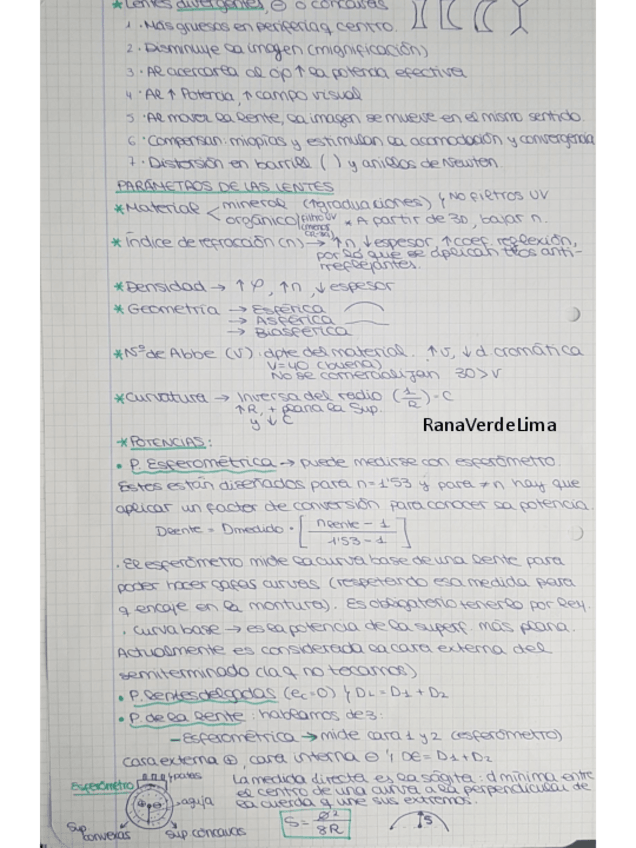 *Lentes divergentes, ⊖ o cóncavas
1. Más gruesos en periferia q centro.
2. Disminuye la imagen (mignificación)
3. Al acercarla al ojo ↑ la potencia efectiva
4. Al ↑ Potencia, ↑ campo visual
5. Al mover la lente, la imagen se mueve en el mismo sentido.
6. Compensan miopías y estimulan la acomodación y convergencia
7. Distorsión en barril ( ) y anillos de Newton.
PARÁMETROS DE LAS LENTES
*Material < mineral (↑graduaciones) y NO filtros UV
orgánico/filtro UV * A partir de 30, bajar n.
*Índice de refracción (n) → ↑n ↓espesor, ↑coef. reflexión,
por lo que se aplican ttos anti-
rreflejantes.
*Densidad → ↑φ, ↑n, ↓espesor
*Geometría → Esférica
→ Asférica
→ Biasférica
*Nº de Abbe (V). dpte del material. ↑V, ↓d. cromática
V=40 (buena)
No se comercializan 30>V
*Curvatura → Inversa del radio (1/R) · C
↑R, + plana la sup.
y ↓C
RanaVerdeLima
*POTENCIAS:
• P. Esferométrica → puede medirse con esferómetro.
Estos están diseñados para n=1'53 y para ≠n hay que
aplicar un factor de conversión para conocer la potencia.
Dlente = Dmedido · [nlente − 1 / 1'53 − 1]
. El esferómetro mide la curva base de una lente para
poder hacer gafas curvas (respetando esa medida para
q encaje en la montura). Es obligatorio tenerlo por ley.
. Curva base → es la potencia de la superf. más plana.
Actualmente es considerada la cara externa del
semiterminado (la q no tocamos)
• P. lentes delgadas (ec=0) y DL = D1 + D2
• P. de la lente: hablamos de 3:
– Esferométrica → mide cara 1 y 2 (esferómetro)
cara externa ⊕, cara interna ⊖ y DE = D1 + D2
Esferómetro
patas
aguja
Sup convexas
Sup cóncavas
La medida directa es la ságita: d mínima entre
el centro de una curva a la perpendicular de
la cuerda q une sus extremos.
S = ø²/8R
S